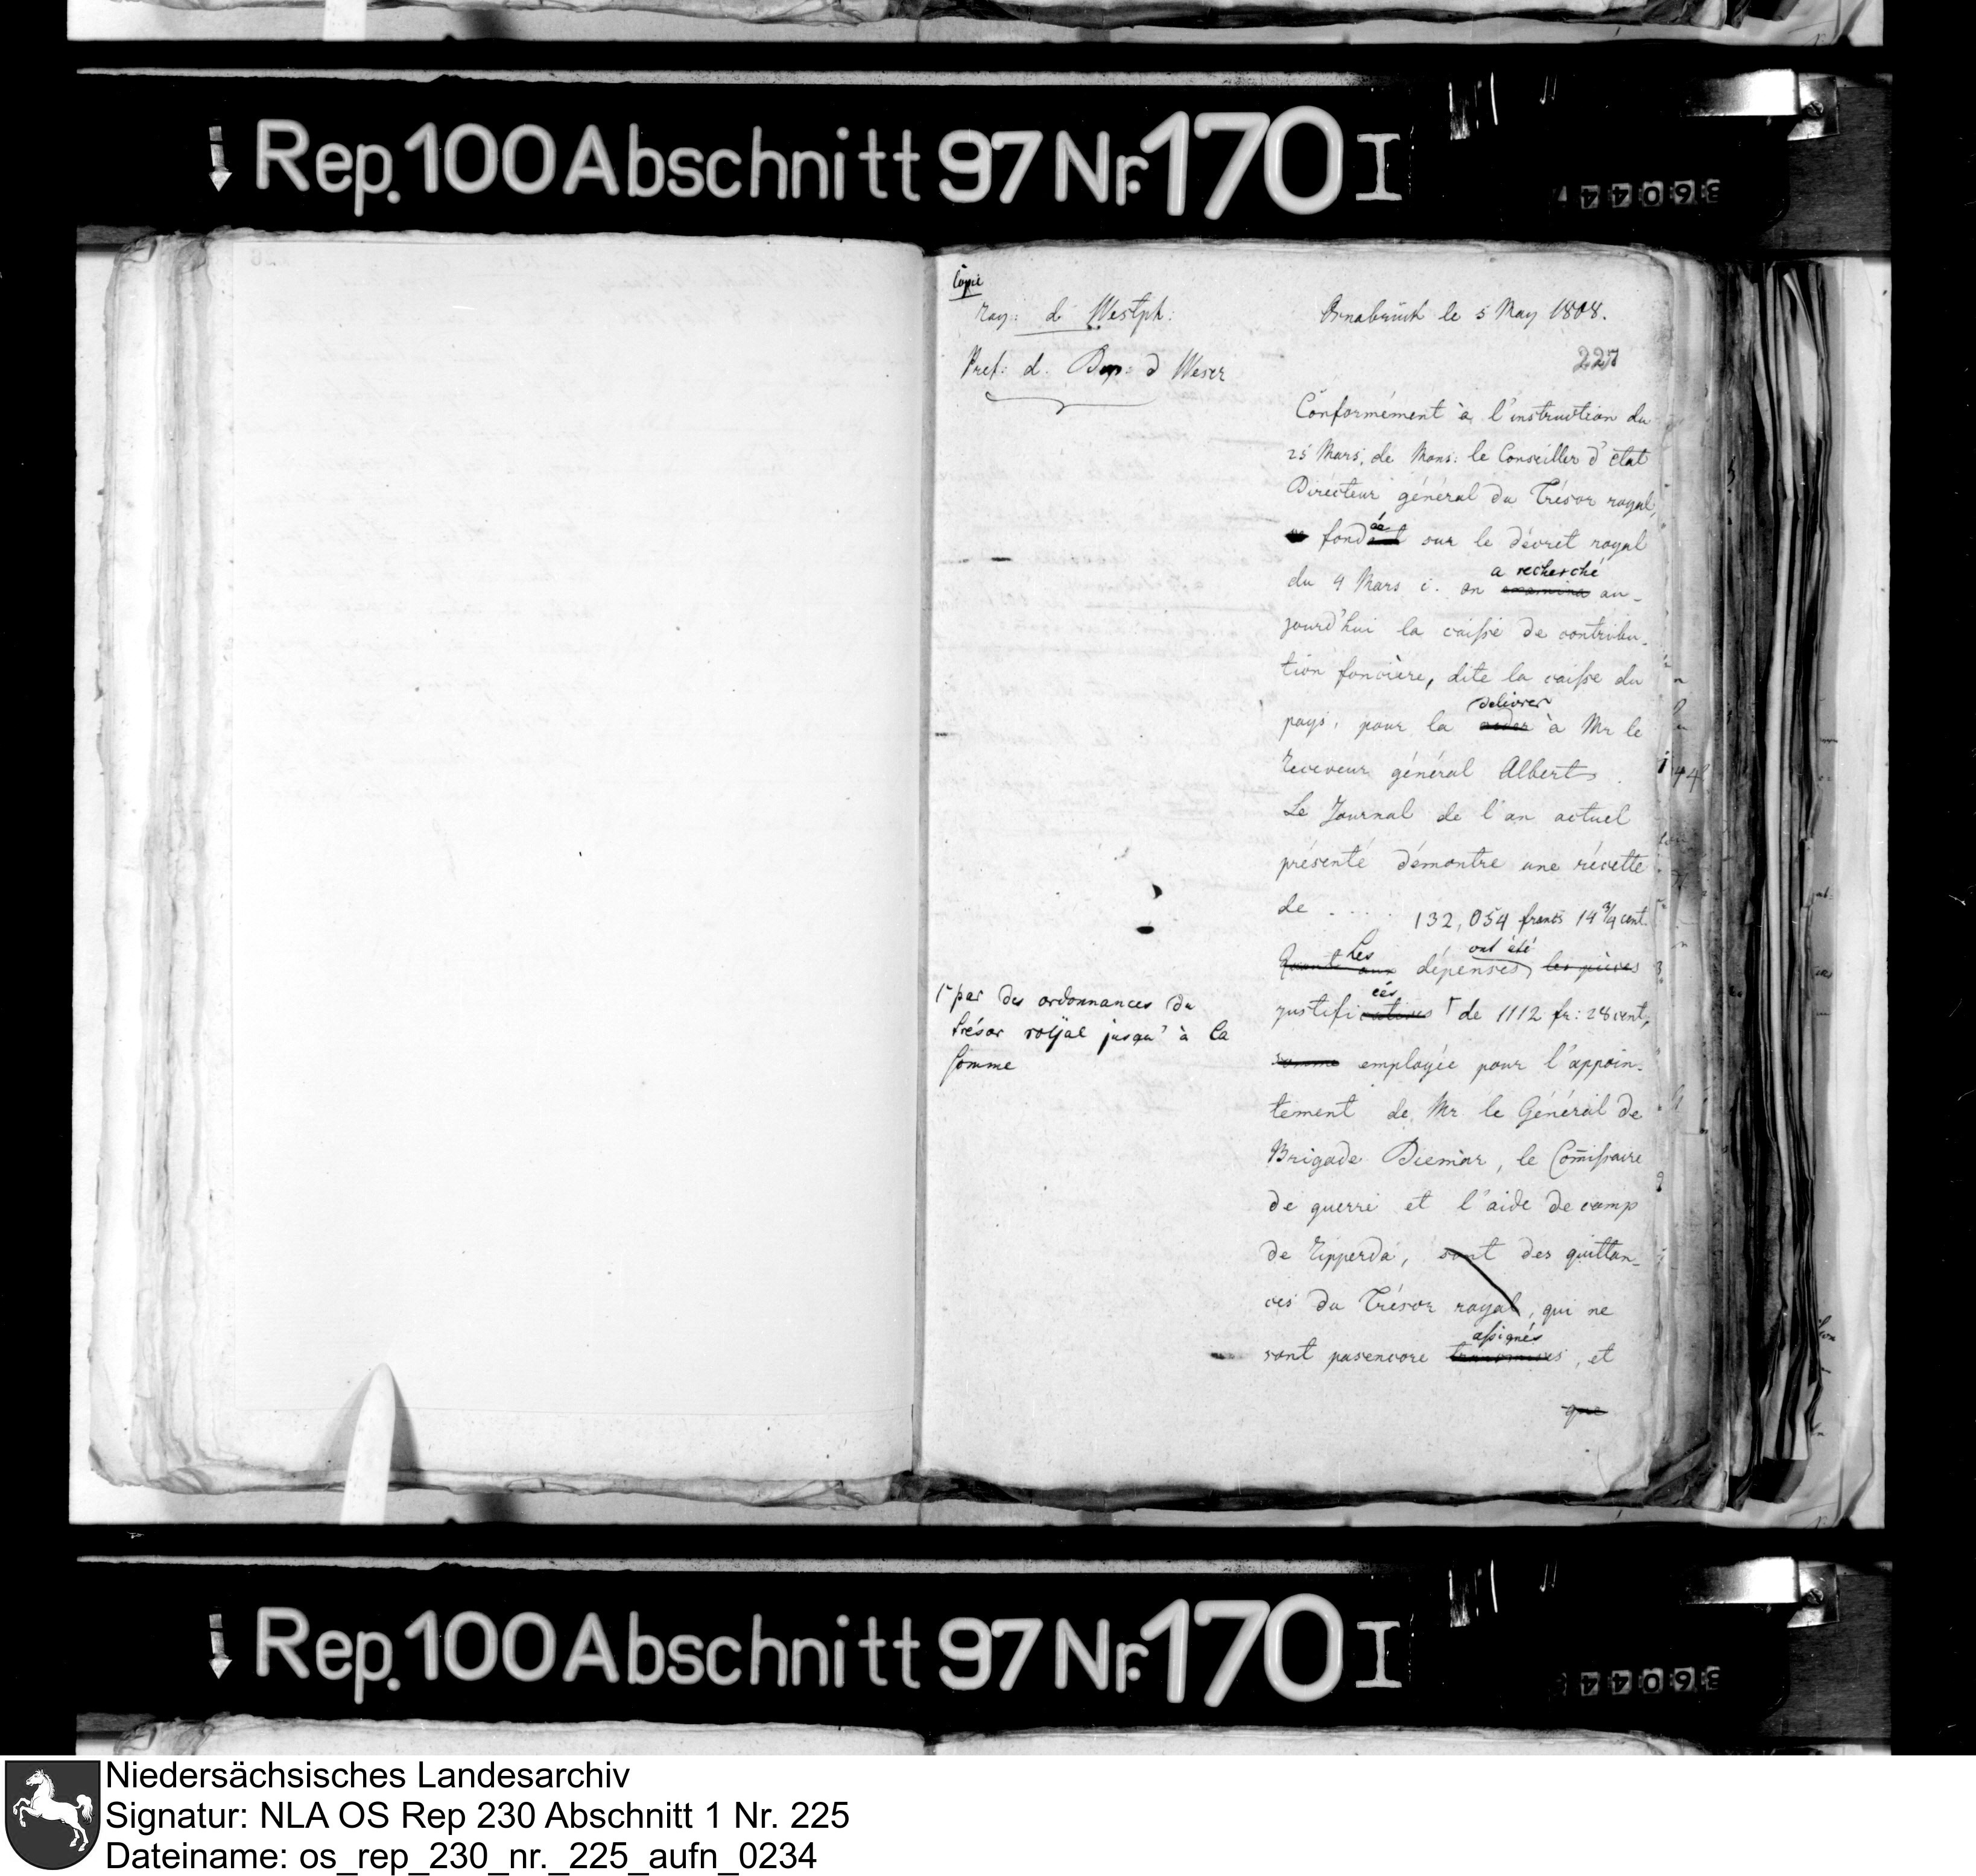 Rep. 100 Abschnitt 97 Nr. 170 I
36044
Copie
Roy: d Westph:
Pref: d. Dep: d Weser
Osnabrück le 5 May 1808.
227
Conformément à l'instruction du
25 Mars, de Mons: le Conseiller d'état
Directeur général du Trésor royal,
fondée sur le décret royal
du 4 Mars c. on a recherché examina au-
jourd'hui la caisse de contribu-
tion foncière, dite la caisse du
pays, pour la délivrer ceder à Mr le
Receveur général Alberts.
Le Journal de l'an actuel
présenté démontre une récette
de .... 132,054 francs 14 3/4 cent.
Quant aux Les dépenses, ont été les pièces
justificatives ées de 1112 fr: 28 cent,
somme employée pour l'appoin-
tement de Mr le Général de
Brigade Diemar, le Com̄issaire
de guerre et l'aide de camp
de Ripperda, sont des quittan-
ces du Trésor royal, qui ne
sont pas encore assignés transmises, et
que
par des ordonnances du
trésor royal jusqu'à la
somme
Rep. 100 Abschnitt 97 Nr. 170 I
36044
Niedersächsisches Landesarchiv
Signatur: NLA OS Rep 230 Abschnitt 1 Nr. 225
Dateiname: os_rep_230_nr._225_aufn_0234